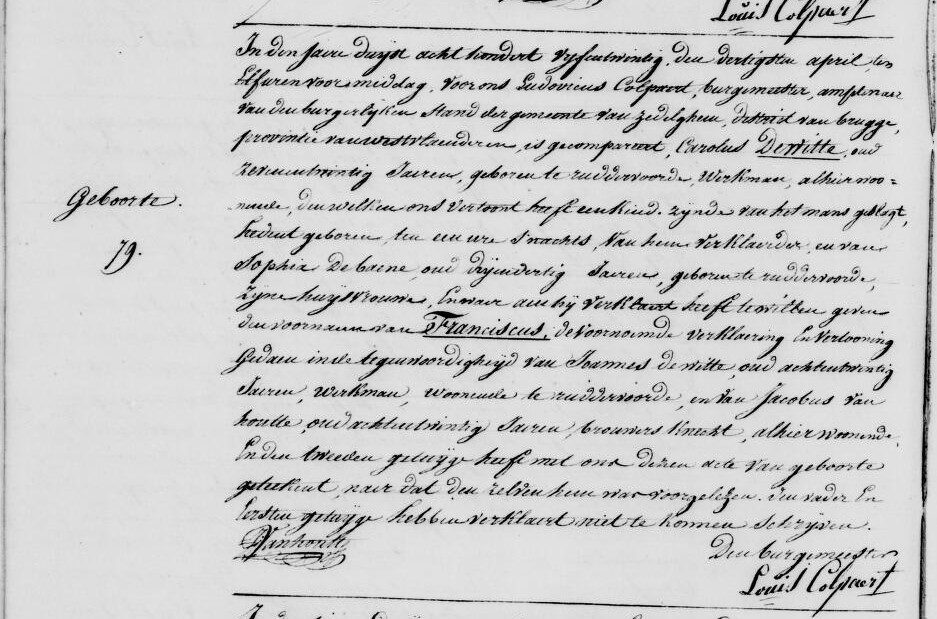 Louis Colpaert
In den Jaere duyst acht hondert vyfentwintig, den dertigsten april, ten
Elf uren voor middag, voor ons Ludovicus Colpaert, burgemeester, amptenaer
van den burgerlyken stand der gemeente van Zedelghem, district van brugge,
provintie van westvlaenderen, is gecompareert, Carolus Dewitte, oud
zevenentwintig Jaeren, geboren te ruddervoorde, Werkman, alhier woo-
nende, den welken ons vertoont heeft een kind zynde van het mans geslagt,
heden geboren ten een ure s'nachts, van hem verklaerder, en van
Sophia De baene, oud dryendertig Jaeren, geboren te ruddervoorde,
Zyne huysvrouwe, En waer aen hy verklaert heeft te willen geven
den voornaem van Franciscus, de voornoemde verklaering En vertooning
Gedaen in de tegenwoordigheyd van Joannes de witte, oud achtentwintig
Jaeren, Werkman, woonende te ruddervoorde, en van Jacobus van
houtte, oud achtentwintig Jaeren, brouwers knecht, alhier woonende,
En den tweeden getuyge heeft met ons dezen acte van geboorte
geteekent, naer dat den zelven hem was voorgelezen. den vader En
Eersten getuyge hebben verklaert niet te konnen schryven.
Vanhoutte
Den burgemeester
Louis Colpaert
Geboorte.
79.